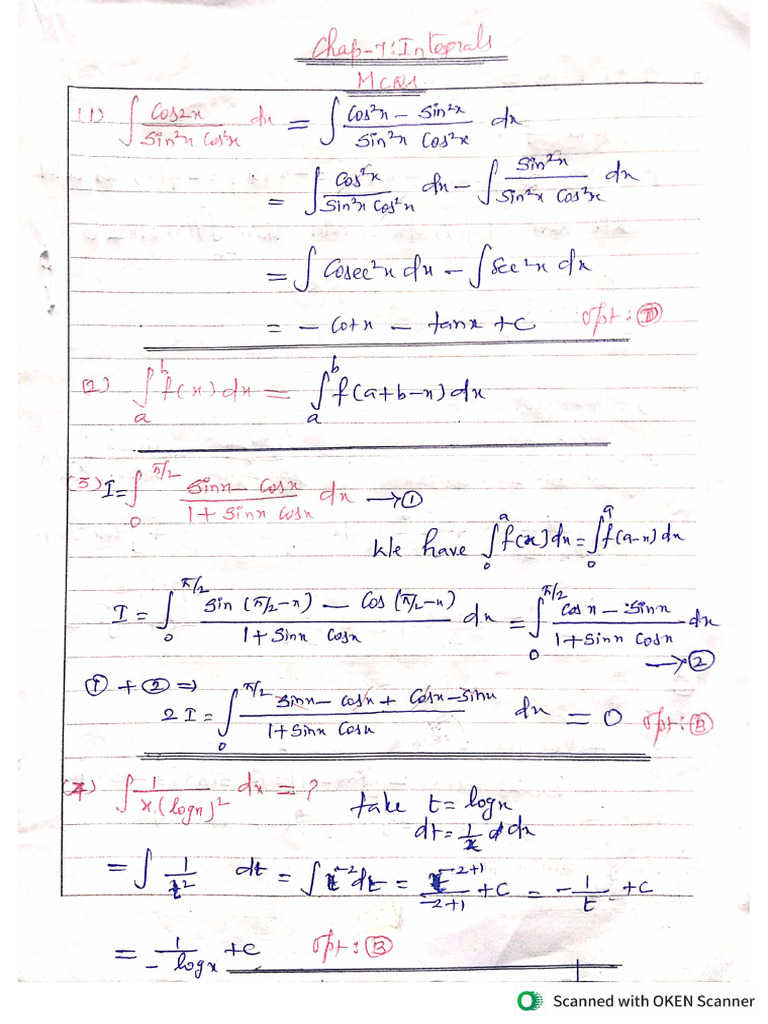 Chap-7: Integrals
MCQs
(1) ∫ Cos2x / Sin²x Cos²x dx = ∫ Cos²x - Sin²x / Sin²x Cos²x dx
= ∫ Cos²x / Sin²x Cos²x dx - ∫ Sin²x / Sin²x Cos²x dx
= ∫ Cosec²x dx - ∫ Sec²x dx
= - Cotx - tanx + C opt: D
(2) ∫ₐᵇ f(x) dx = ∫ₐᵇ f(a+b-x) dx
(3) I = ∫₀^π/2 Sinx - Cosx / 1 + Sinx Cosx dx → ①
We have ∫₀ᵃ f(x) dx = ∫₀ᵃ f(a-x) dx
I = ∫₀^π/2 Sin(π/2-x) - Cos(π/2-x) / 1 + Sinx Cosx dx = ∫₀^π/2 Cosx - Sinx / 1 + Sinx Cosx dx
→ ②
① + ② ⇒
2I = ∫₀^π/2 Sinx - Cosx + Cosx - Sinx / 1 + Sinx Cosx dx = 0 opt: B
(4) ∫ 1 / x.(logx)² dx = ? take t = logx
dt = 1/x dx
= ∫ 1/t² dt = ∫ t⁻² dt = t⁻²⁺¹ / -2+1 + C = - 1/t + C
= 1 / - logx + C opt: B
Scanned with OKEN Scanner